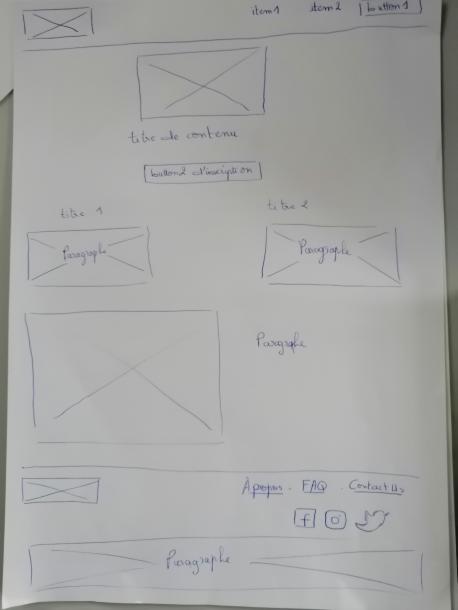 item1 item2 button1
titre de contenu
button2 d'inscription
titre 1 titre 2
Paragraphe Paragraphe
Paragraphe
À propos. FAQ . Contact Us
f
Paragraphe